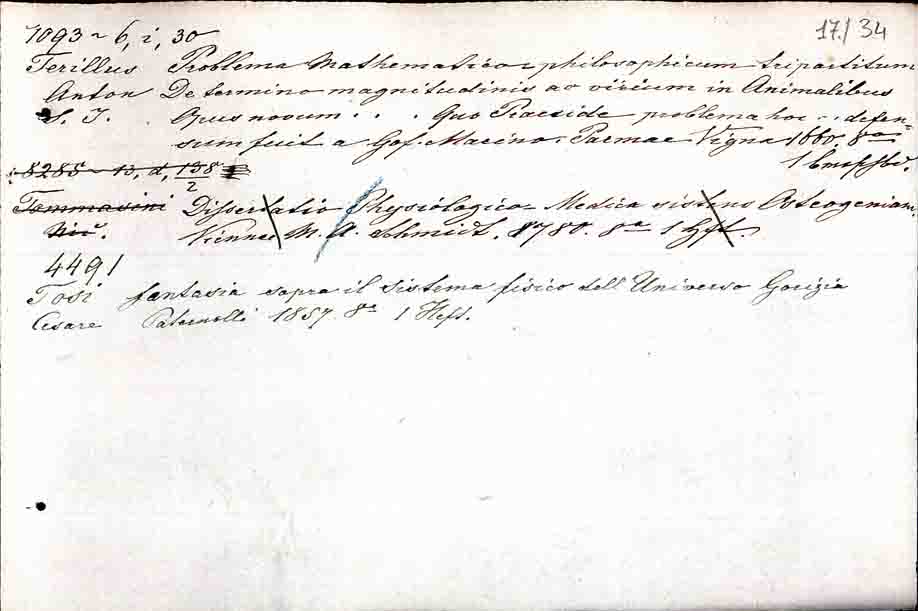 17./34
7093 ~ 6, i, 30
Terillus Problema Mathematico-philosophicum tripartitum
Anton De termino magnitudinis ac virium in Animalibus
S. J. Opus novum . . . Quo Praeside problema hoc . . defen-
sum fuit a Gof. Marino. Parmae Vigna 1660. 8vo
1
8285 ~ b, d, 138/2
Tommasini Dissertatio Physiologico-Medica sistens Osteogeniam
Nic. Viennae M. A. Schmidt. 1780. 8° 1 Hft.
4491
Tosi fantasia sopra il sistema fisico dell Universo Gorizia
Cesare Paternolli 1857. 8° 1 Heft.